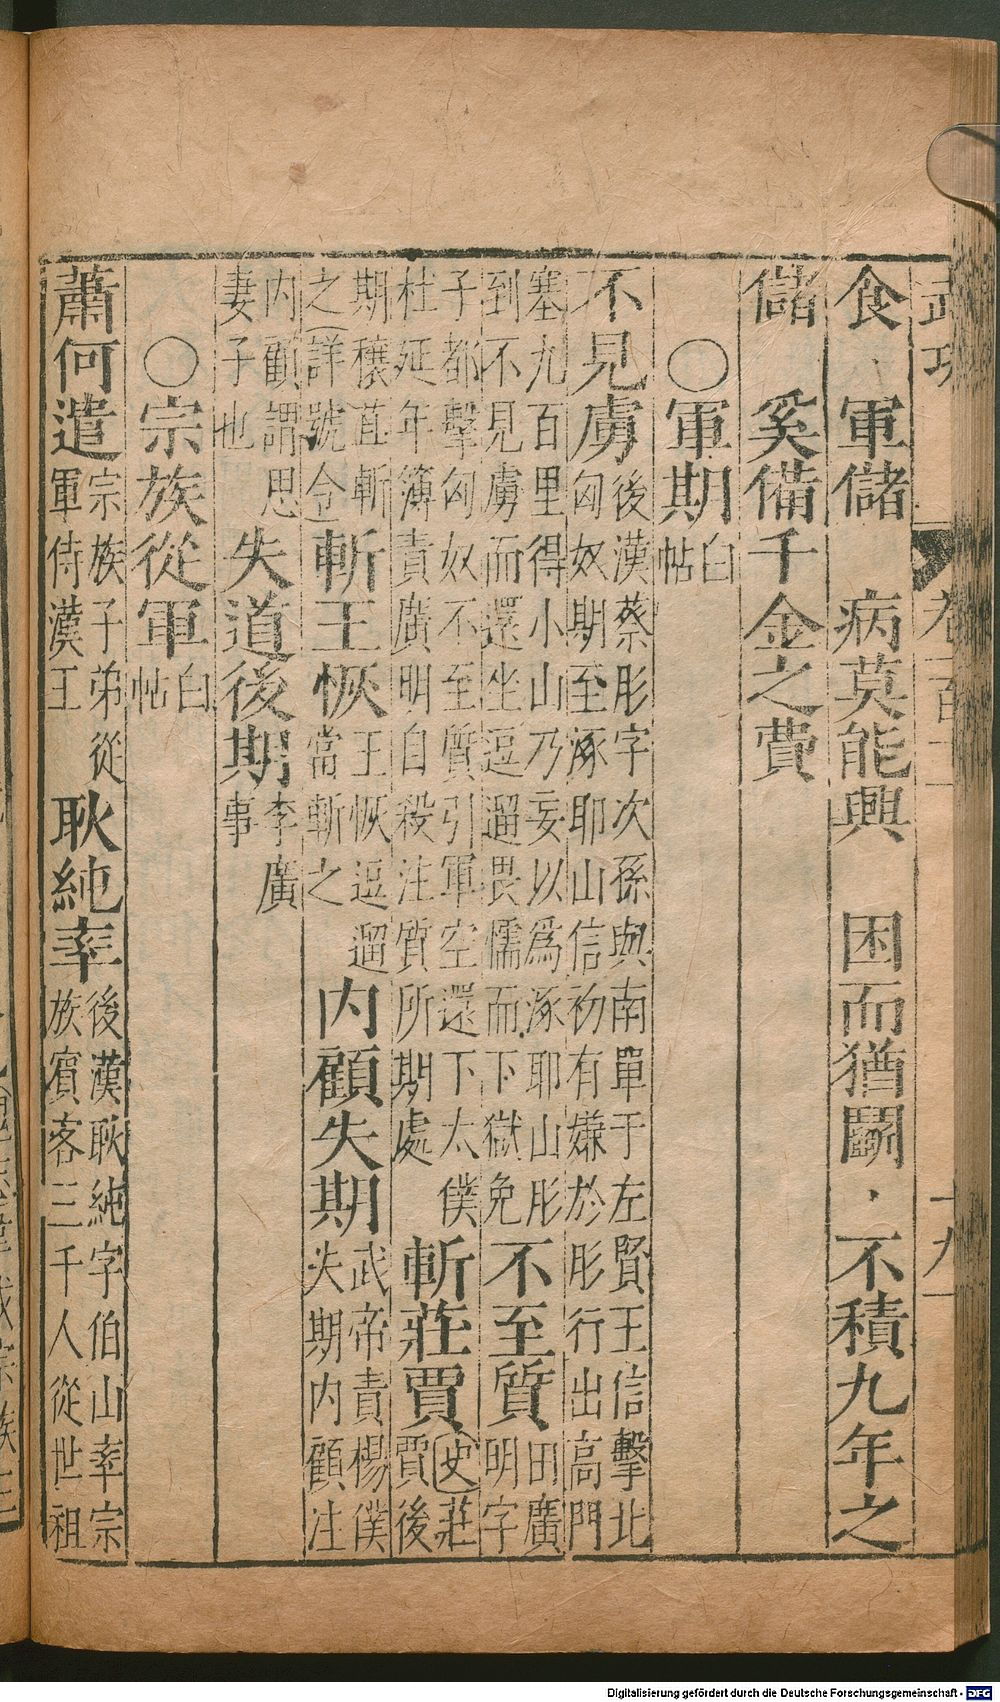 武功 卷一百 十九
食 軍儲 病莫能興 困而猶鬭 不積九年之
儲 奚備千金之費
○軍期 白帖
不見虜 後漢蔡肜字次孫與南單于左賢王信擊北
匈奴期至涿耶山信初有嫌於肜行出高門
塞九百里得小山乃妄以爲涿耶山肜
到不見虜而還坐逗遛畏懦而下獄免 不至質 田廣
明字
子都擊匈奴不至質引軍空還下太僕
杜延年簿責廣明自殺注質所期處 斬莊賈 史莊
賈後
期穰苴斬
之(詳號令) 斬王恢 王恢逗遛
當斬之 内顧失期 武帝責楊僕
失期内顧注
内顧謂思
妻子也 失道後期 李廣
事
○宗族從軍 白帖
蕭何遣 宗族子弟從
軍侍漢王 耿純率 後漢耿純字伯山率宗
族賓客三千人從世祖
Digitalisierung gefördert durch die Deutsche Forschungsgemeinschaft - DFG